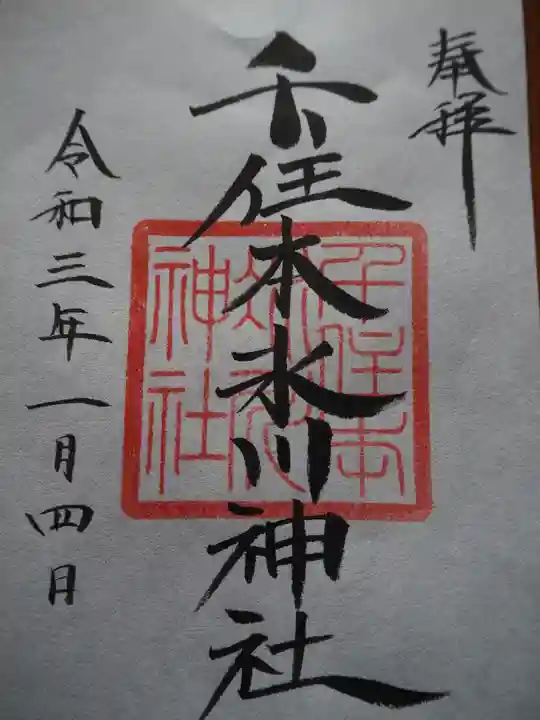 奉拝
千住本氷川神社
千住本
神社
令和三年一月四日